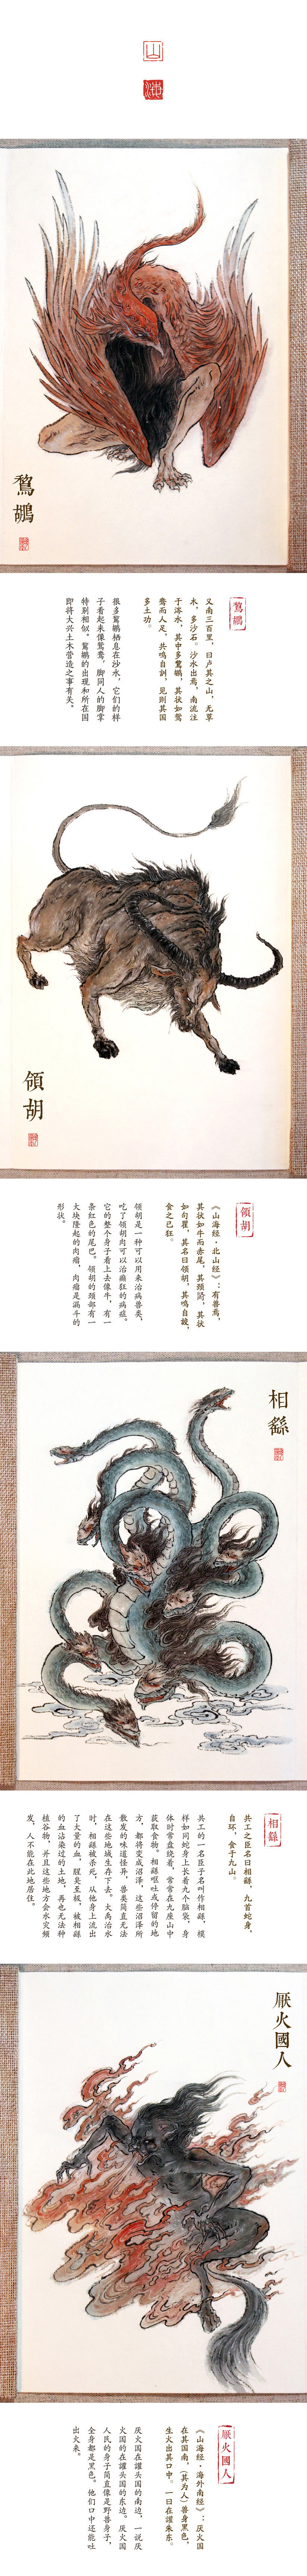 山
海
鵹鶘
鵹鶘
又南三百里，曰卢其之山，无草
木，多沙石，沙水出焉，南流注
于涔水，其中多鵹鶘，其状如鸳
鸯而人足，其鸣自訓，见则其国
多土功。
很多鵹鶘栖息在沙水，它们的样
子看起来像鸳鸯，脚同人的脚掌
特别相似。鵹鶘的出现和所在国
即将大兴土木营造之事有关。
領胡
領胡
《山海经·北山经》：有兽焉，
其状如牛而赤尾，其頸，其状
如句瞿，其名曰领胡，其鸣自詨，
食之已狂。
领胡是一种可以用来治病兽类，
吃了领胡肉可以治癫狂的病症。
它的整个身子看上去像牛，有一
条红色的尾巴。领胡的颈部有一
大块隆起的肉瘤，肉瘤是漏斗的
形状。
相繇
相繇
共工之臣名曰相繇，九首蛇身，
自环，食于九山。
共工的一名臣子名叫作相繇，模
样如同蛇身上长着九个脑袋，身
体时常盘绕着，常常在九座山中
获取食物。相繇呕吐或停留的地
方，都将变成沼泽，这些沼泽所
散发的味道怪异，兽类简直无法
在这些地域生存下去。大禹治水
时，相繇被杀死，从他身上流出
了大量的血，腥臭至极，被相繇
的血沾染过的土地，再也无法种
植谷物，并且这些地方会水灾频
发，人不能在此地居住。
厭火國人
厭火國人
《山海经·海外南经》：厌火国
在其国南，（其为人）兽身黑色，
生火出其口中。一曰在讙朱东。
厌火国在讙头国的南边，一说厌
火国的在讙头国的东边。厌火国
人民的身子简直像是野兽身子，
全身都是黑色。他们口中还能吐
出火来。